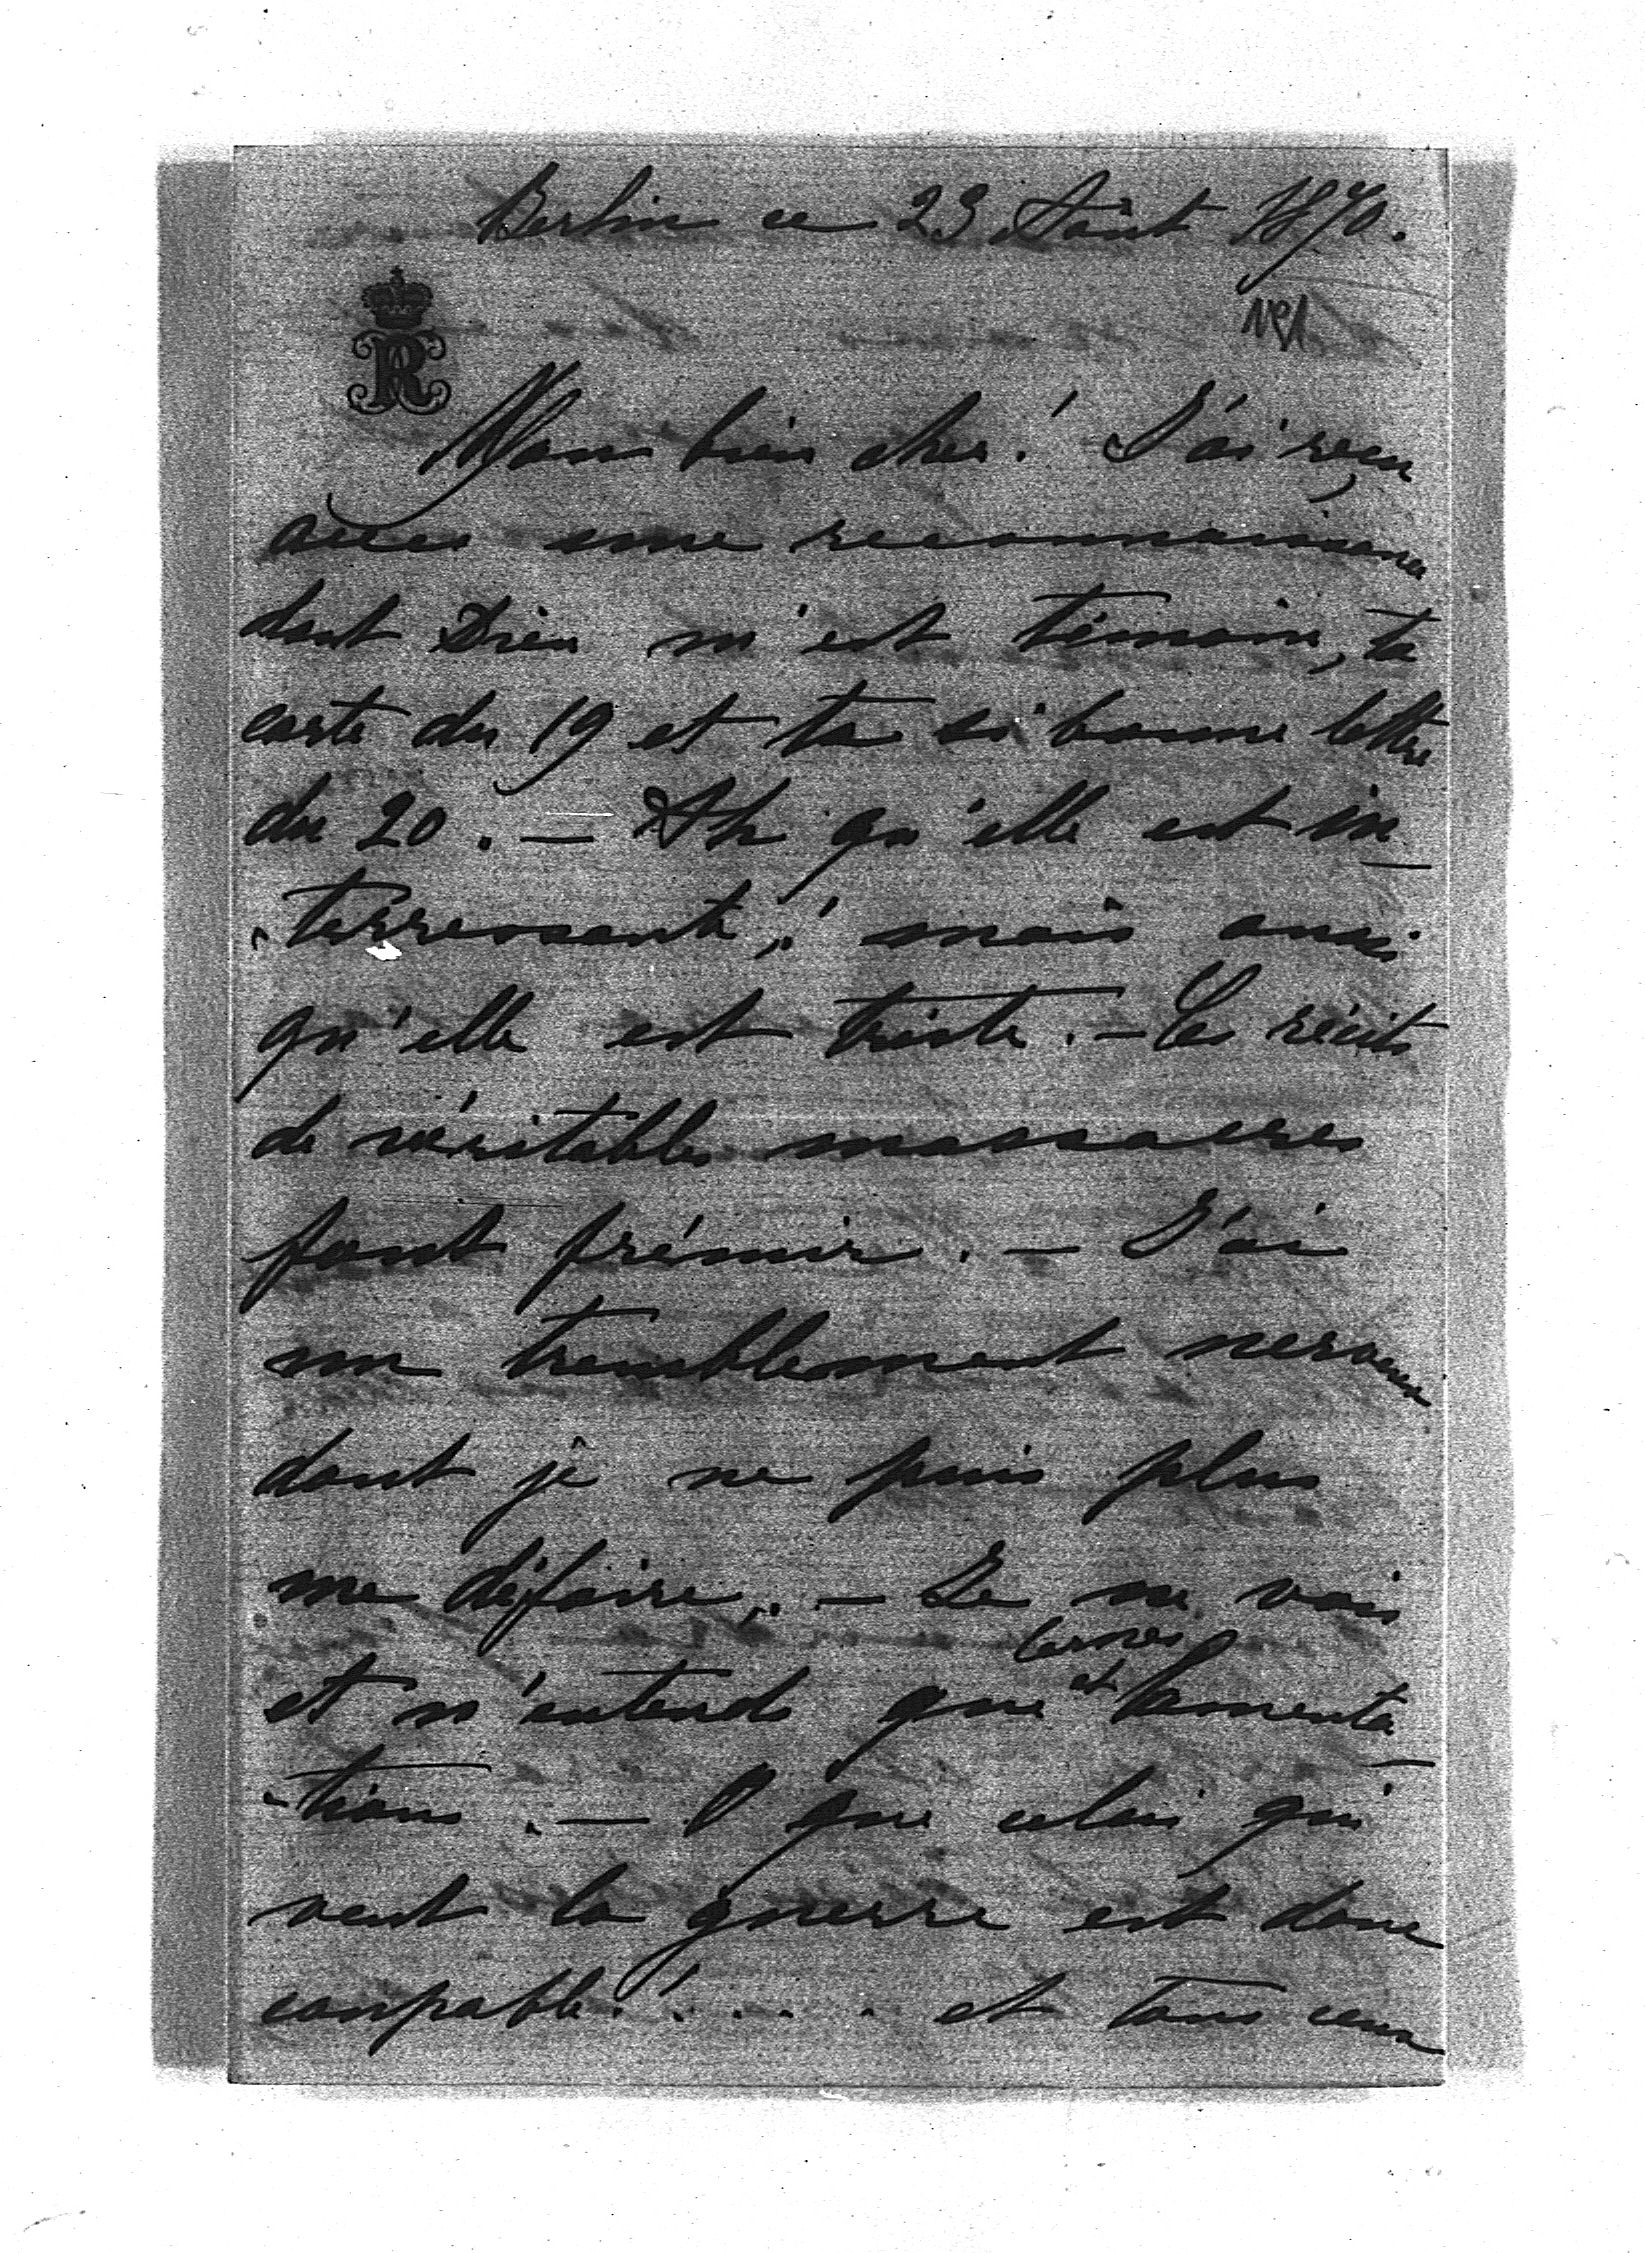 Berlin ce 23 Août 1870.
R
Mon bien cher! J'ai reçu
avec une reconnaissance
dont Dieu m'est témoin, ta
carte du 19 et ta si bonne lettre
du 20. — Ah qu'elle est in-
-terressante! mais aussi
qu'elle est triste. — Les récits
de véritables massacres
font frémir. — J'ai
un tremblement nerveux
dont je ne puis plus
me défaire. — Je ne vois
et n'entends que larmes et lamenta-
-tions. — O que celui qui
veut la guerre est donc
coupable! . . . . et tous ceux